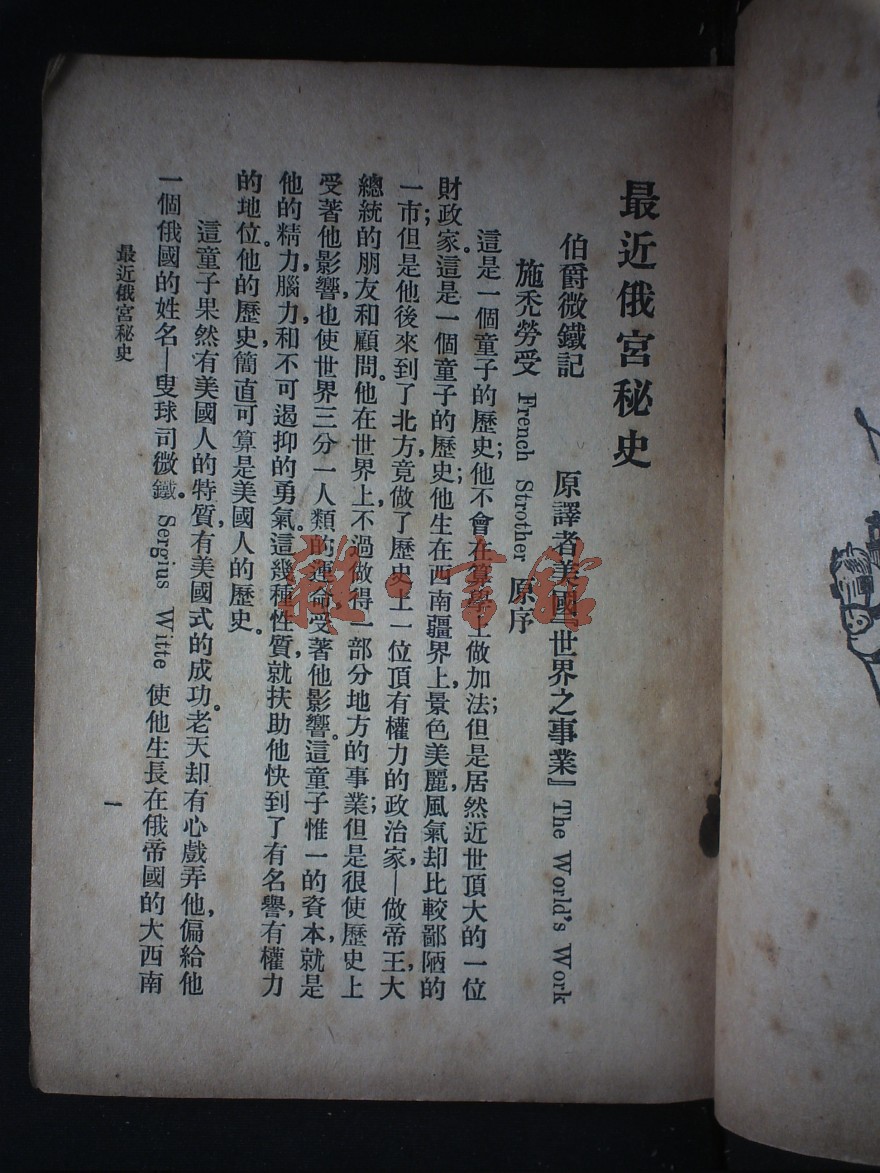 最近俄宮秘史
伯爵微鐵記　原譯者美國『世界之事業』The World's Work
施禿勞受 French Strother 原序
這是一個童子的歷史；他不會在算學上做加法；但是居然近世頂大的一位
財政家。這是一個童子的歷史；他生在西南疆界上，景色美麗，風氣却比較鄙陋的
一市；但是他後來到了北方，竟做了歷史上一位頂有權力的政治家—做帝王大
總統的朋友和顧問。他在世界上，不過做得一部分地方的事業；但是很使歷史上
受著他影響，也使世界三分一人類的運命，受著他影響。這童子惟一的資本，就是
他的精力，腦力，和不可遏抑的勇氣。這幾種性質，就扶助他快到了有名譽，有權力
的地位。他的歷史，簡直可算是美國人的歷史。
這童子果然有美國人的特質，有美國式的成功。老天却有心戲弄他，偏給他
一個俄國的姓名—叟球司微鐵。Sergius Witte 使他生長在俄帝國的大西南
最近俄宮秘史
一
雜·書館